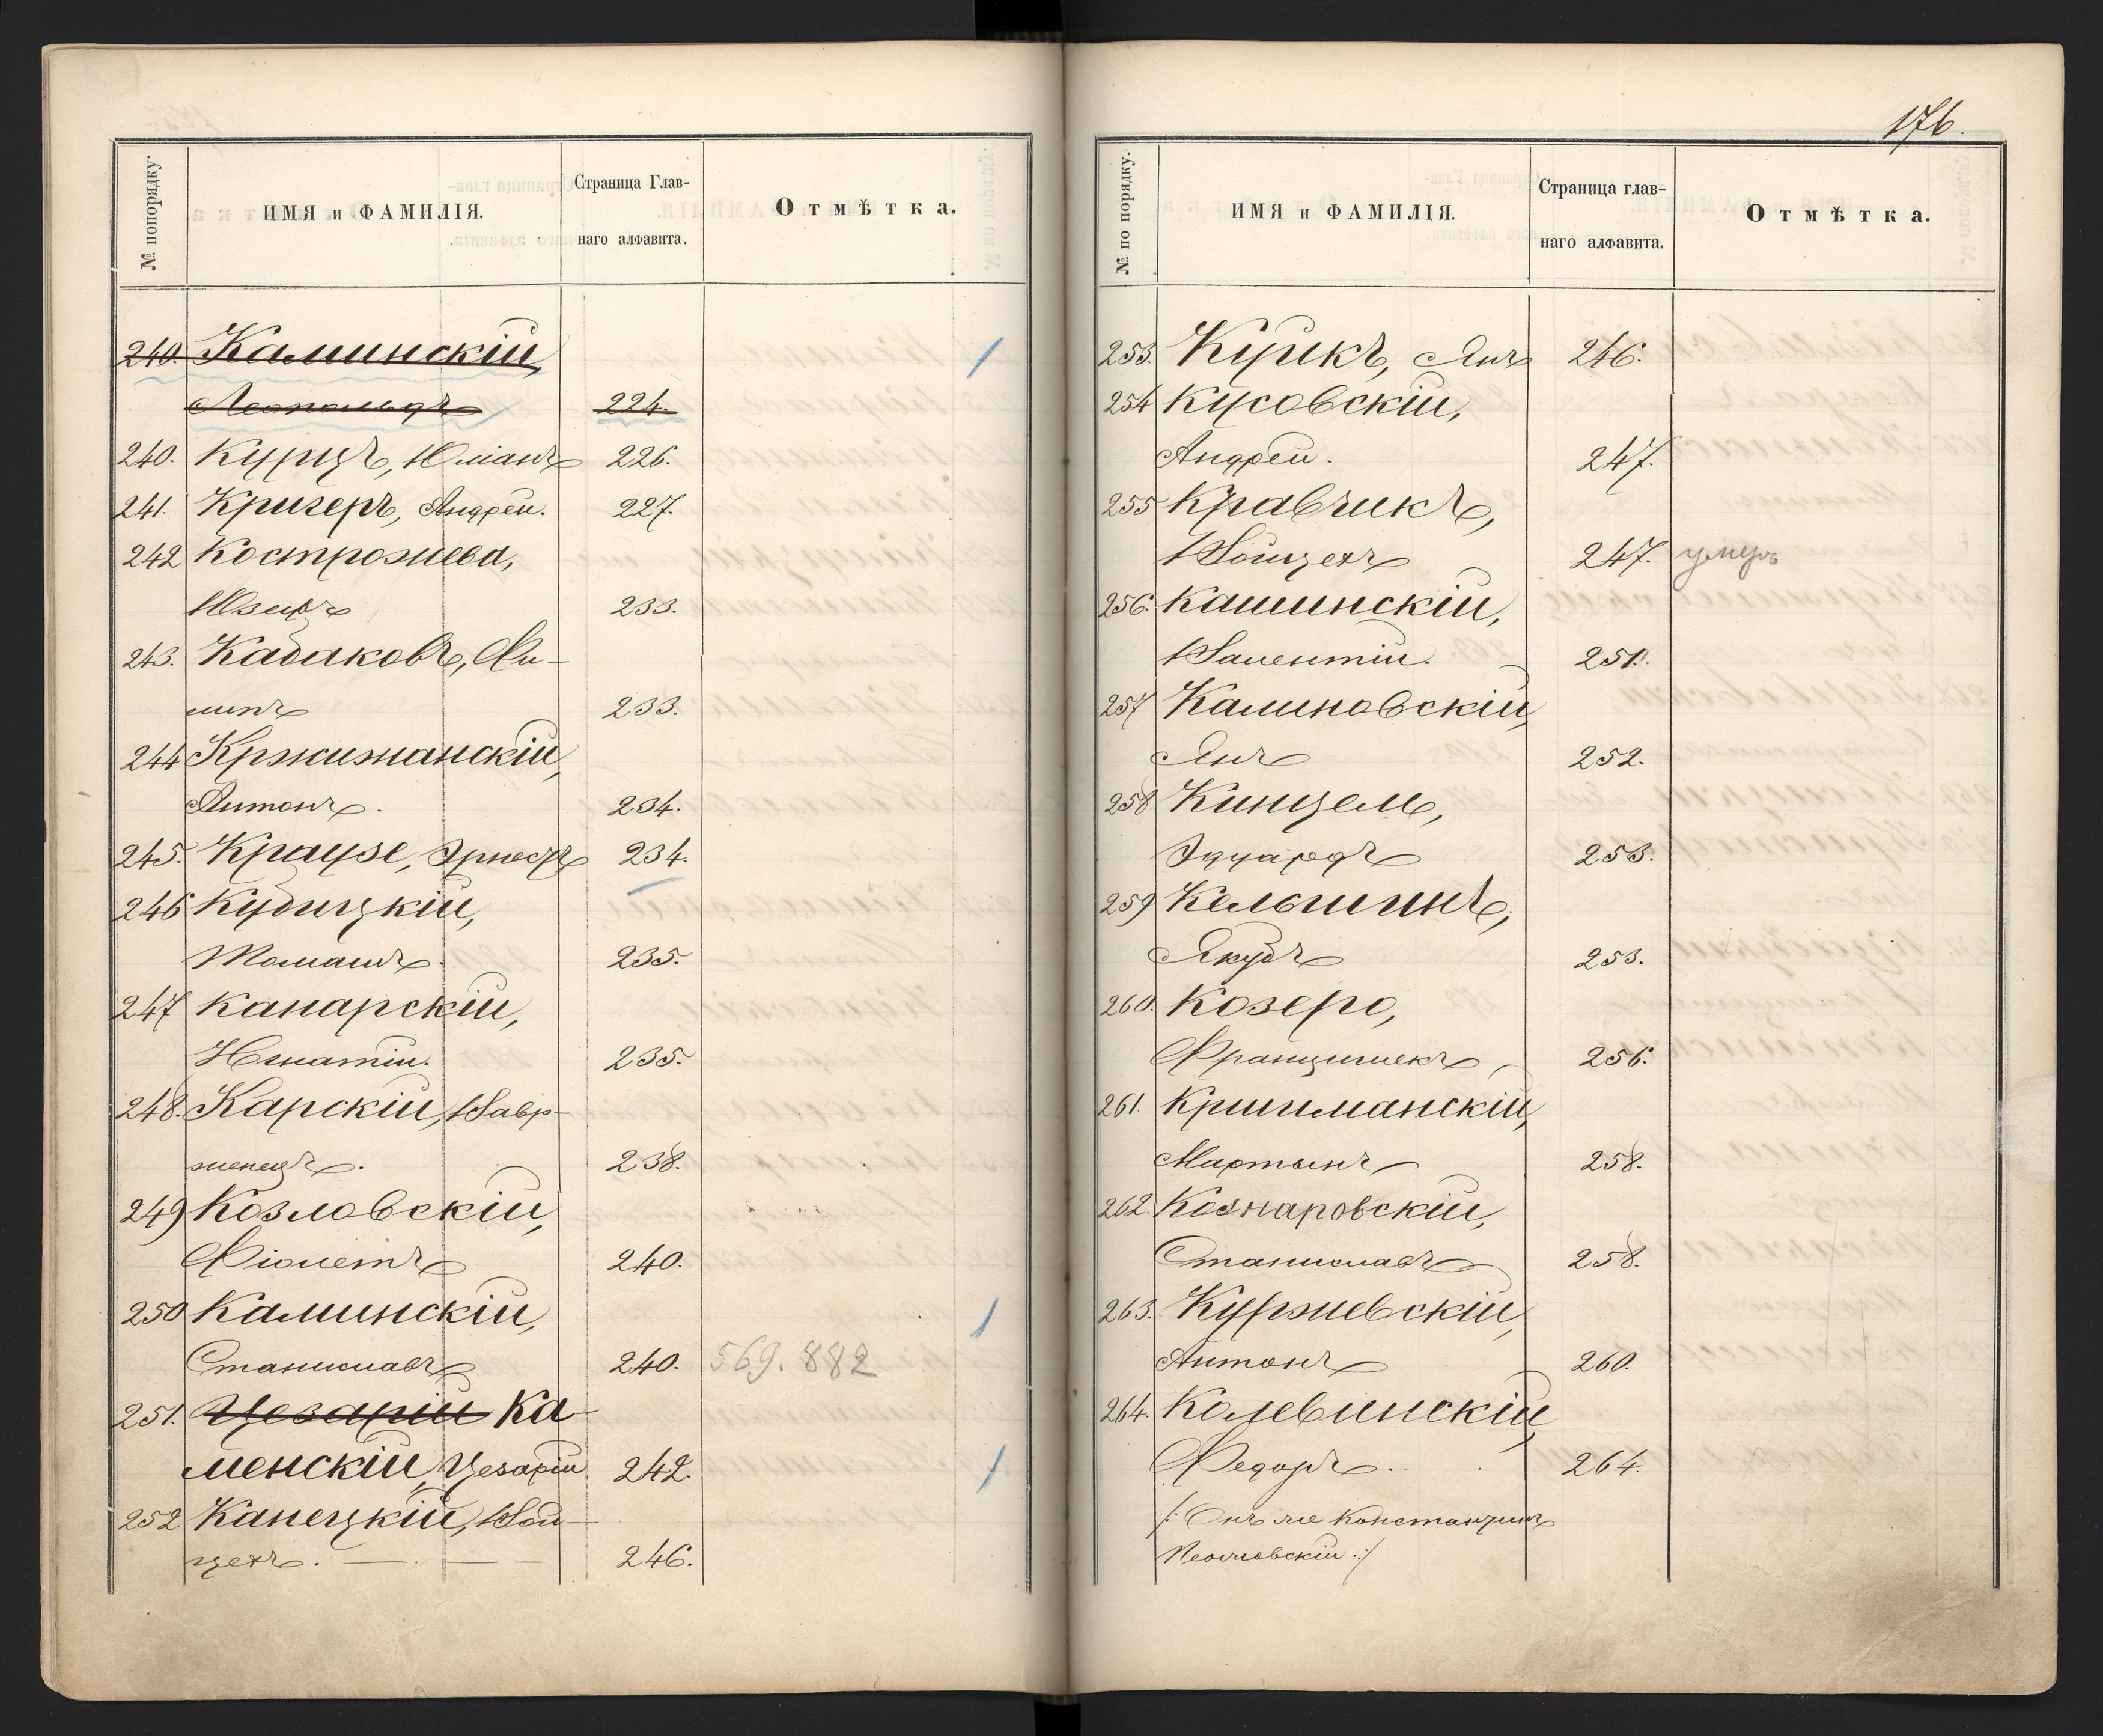 № попорядку.
ИМЯ и ФАМИЛІЯ.
Страница Глав-
наго алфавита.
Отмѣтка.
240. Каминскій,
Леопольдъ 224.
240. Курцъ, Юліанъ 226.
241. Кригеръ, Андрей. 227.
242 Костржиева,
Юзефъ 233.
243. Кабаковъ, Фи-
липъ 233.
244 Кржижанскій,
Антонъ. 234.
245. Краузе, Эрнестъ 234.
246 Кубицкій,
Томашъ. 235.
247 Канарскій,
Игнатій. 235.
248. Карскій, Вавр-
женецъ. 238.
249 Козловскій,
Філетъ 240.
250 Каминскій,
Станиславъ 240. 569. 882
251. Цезарій Ка-
менскій, Цезарій 242.
252. Канецкій, Вой-
цехъ. 246.
176.
№ по порядку.
ИМЯ и ФАМИЛІЯ.
Страница глав-
наго алфавита.
Отмѣтка.
253. Куликъ, Янъ 246.
254 Кусовскій,
Андрей. 247.
255 Кравчикъ,
Войцехъ 247. умеръ
256. Кашинскій,
Валентій. 251.
257 Калиновскій,
Янъ 252.
258 Кинцель,
Эдуардъ 253.
259 Кельшинъ,
Якубъ 253.
260. Козеро,
Францишекъ 256.
261. Кришманскій,
Мартынъ 258.
262. Кознаровскій,
Станиславъ 258.
263. Куржевскій,
Антонъ 260.
264. Колевинскій,
Федоръ. 264.
/: Онъ же Константинъ
:/